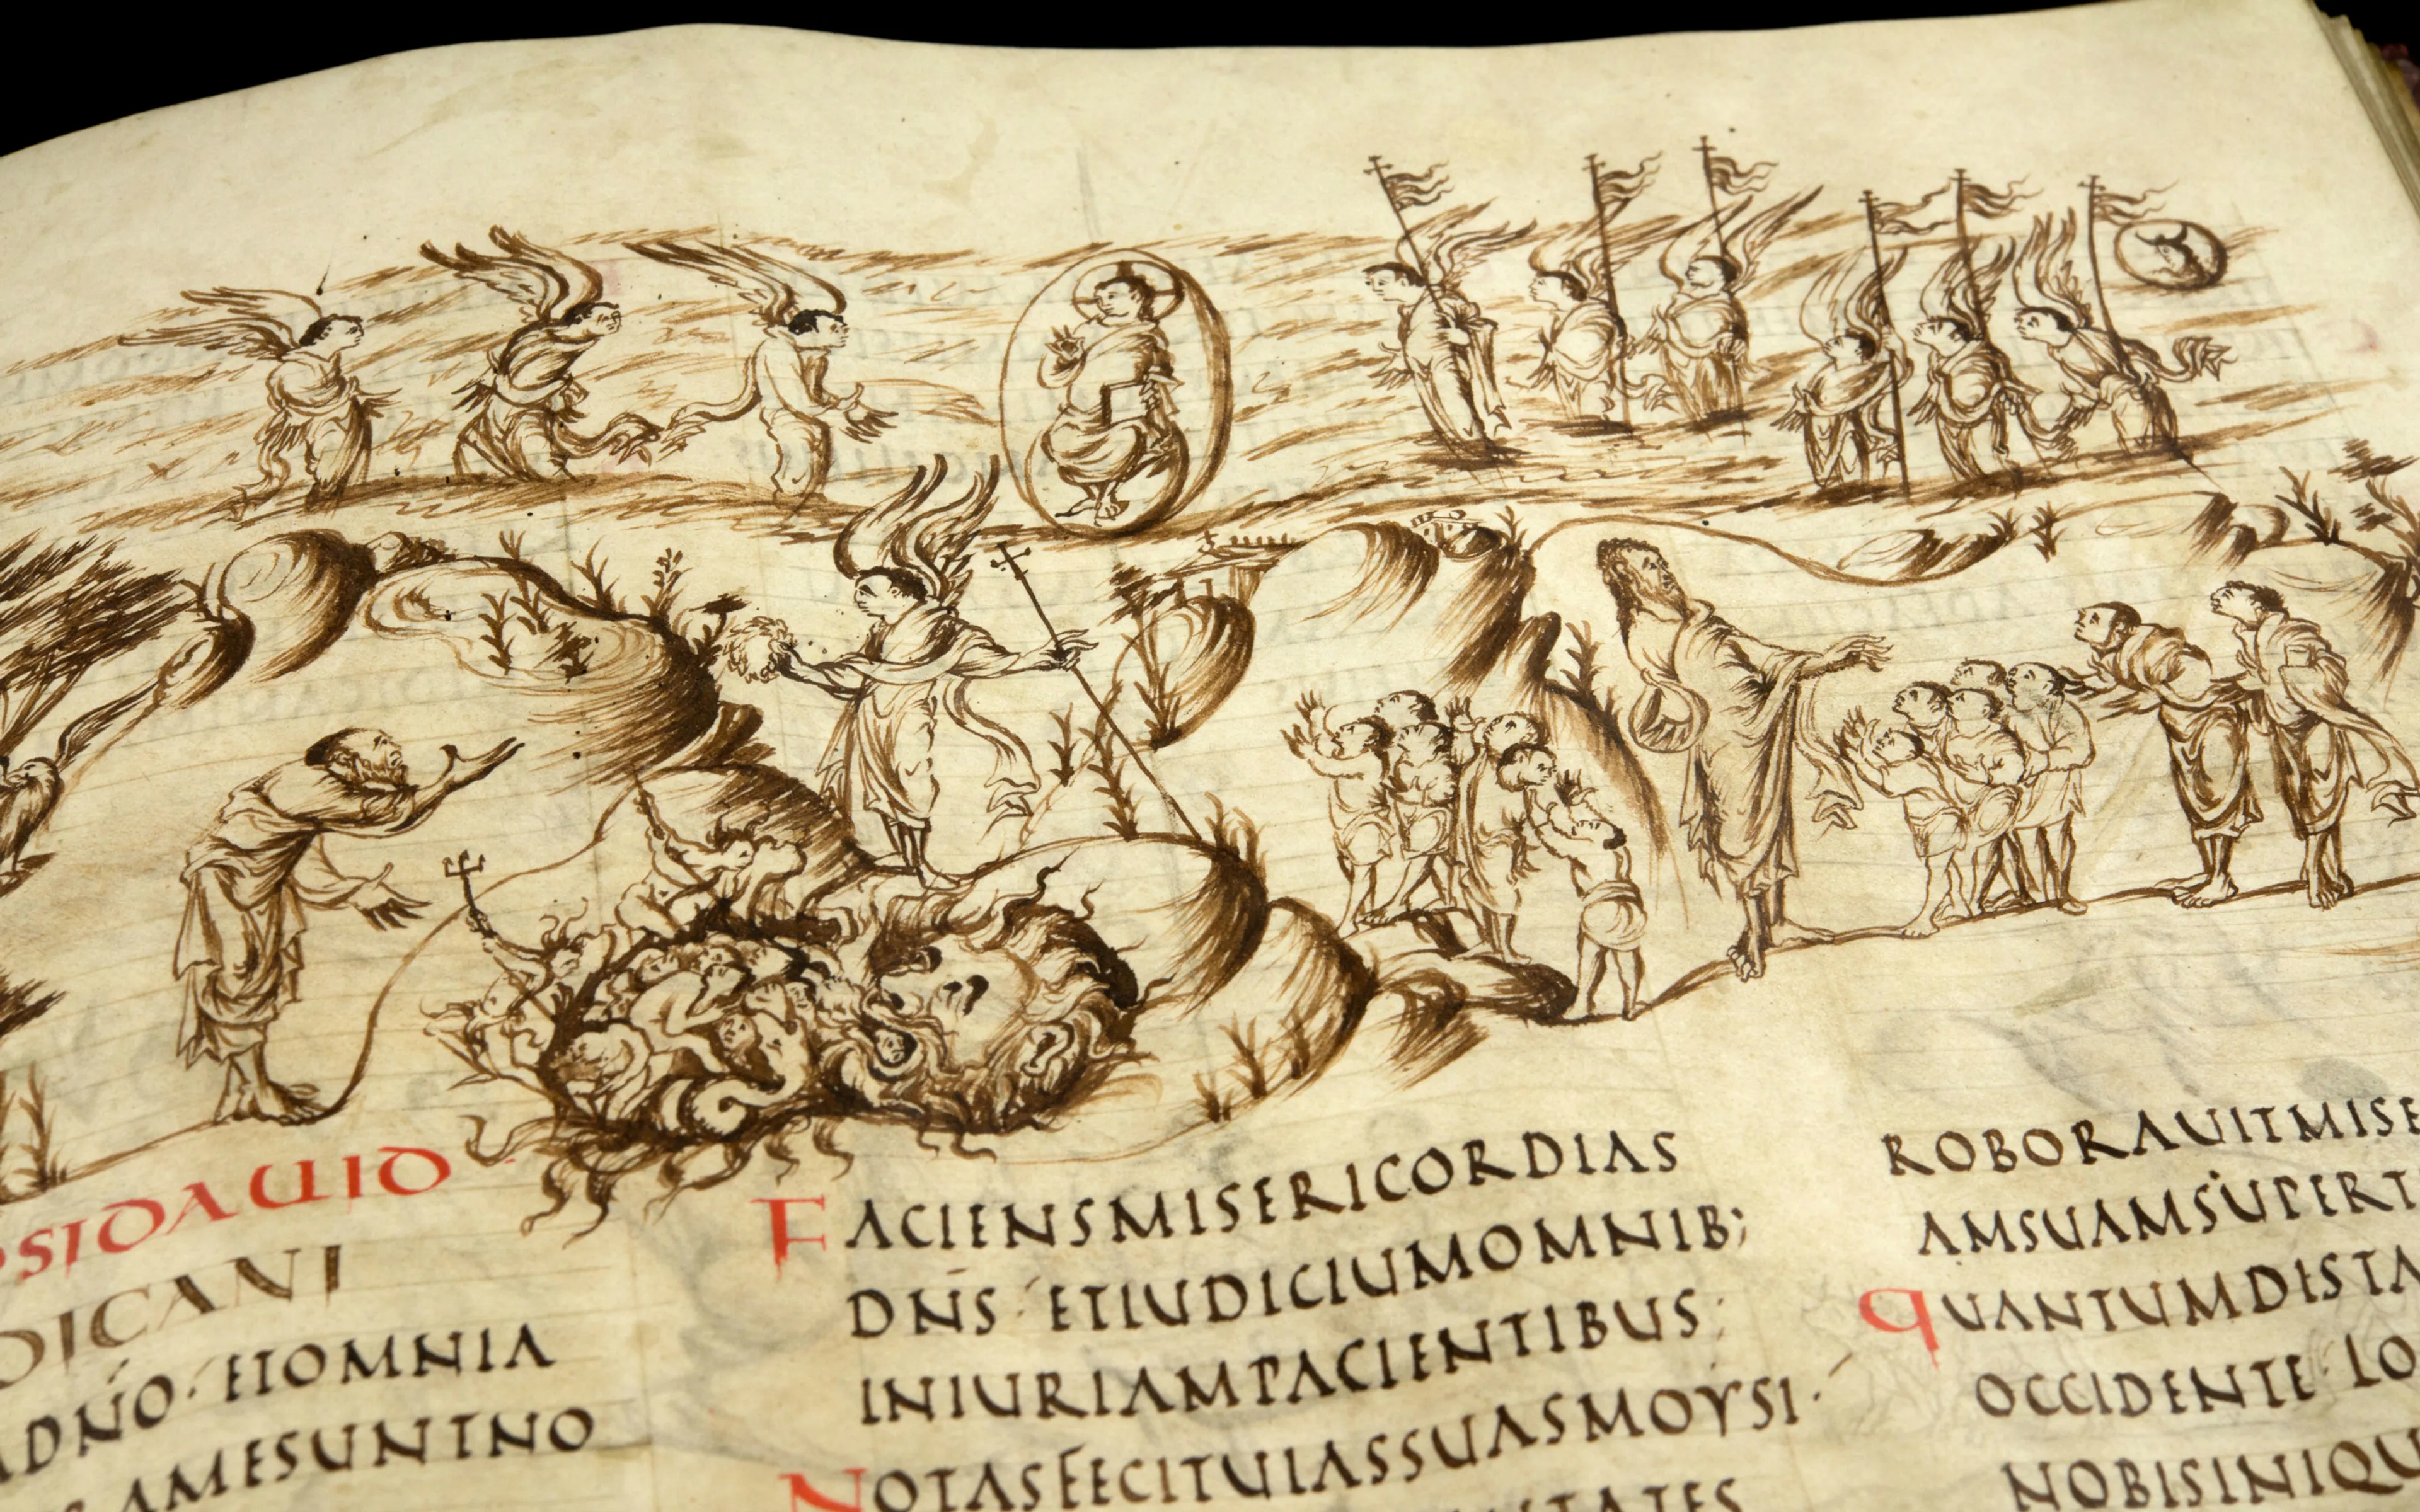 SIDAUID
DICANI
ADNO·ETOMNIA
AMESUNTNO
FACIENSMISERICORDIAS
DNS·ETIUDICIUMOMNIB;
INIURIAMPACIENTIBUS;
NOTASFECITUIASSUASMOYSI·
TATES
ROBORAUITMISE
AMSUAMSUPERT
QUANTUMDISTA
OCCIDENTE·LO
NOBISINIQU